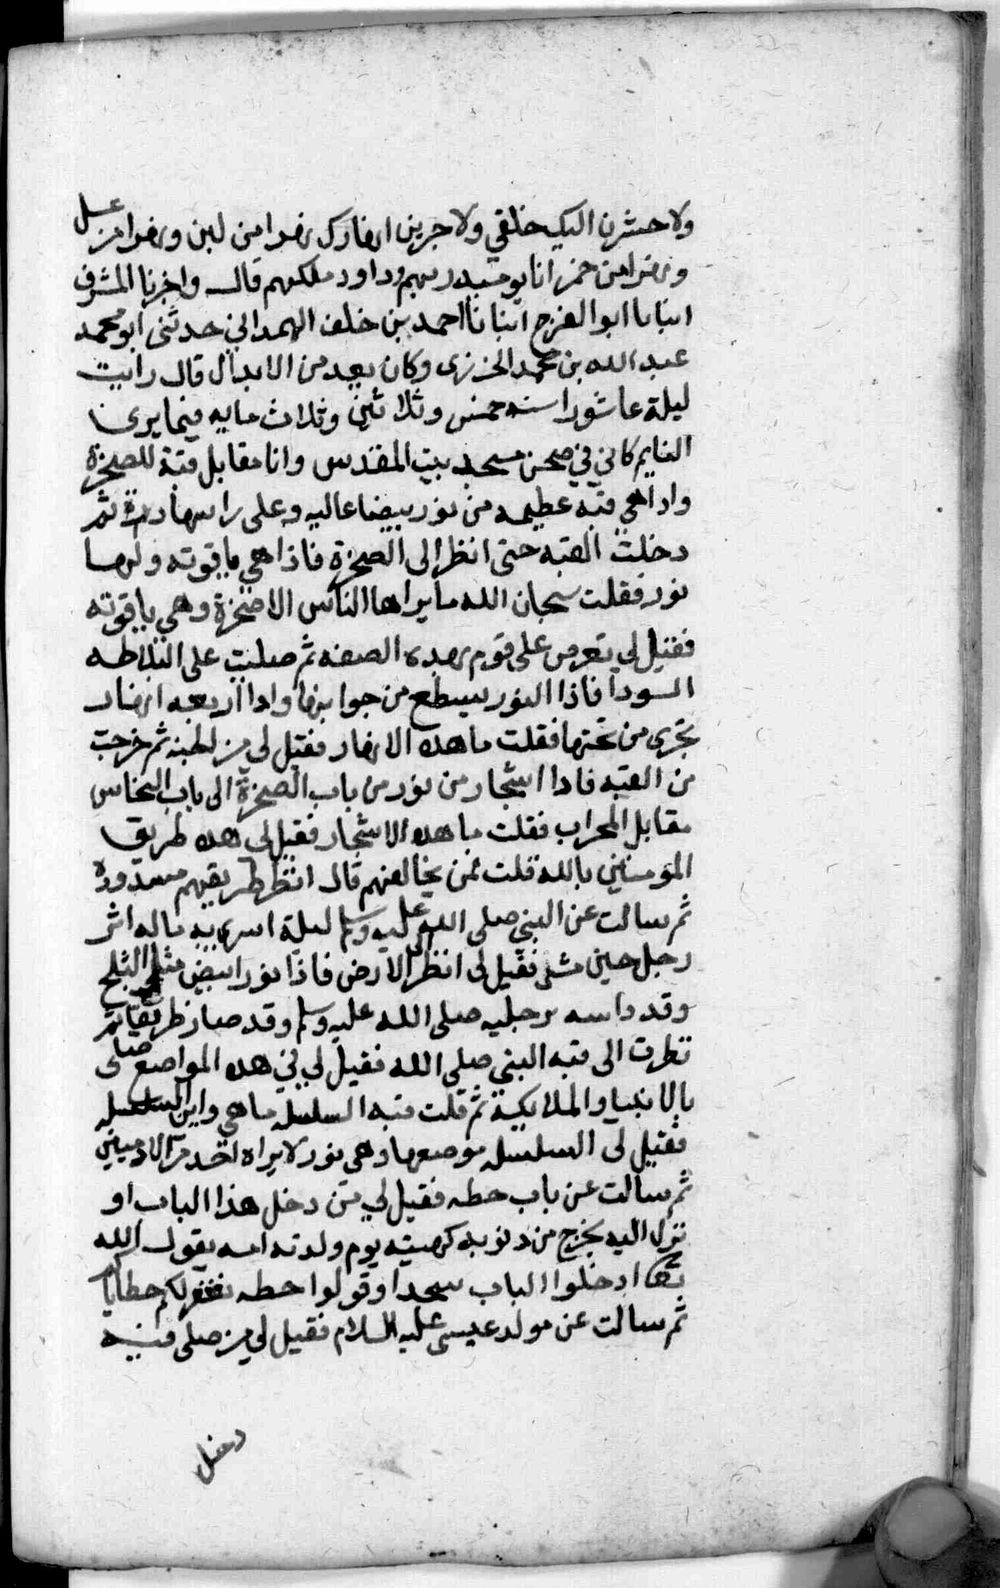 ولاحشرن اليك خلقي ولاجرين انهارك نهرا من لبن ونهرا من عسل
ونهرا من خمر انا يوميد ربهم وداود ملكهم قال واخبرنا المشرف
انبانا ابو الفرج انبانا احمد بن خلف الهمداني حدثنى ابو محمد
عبد الله بن محمد الخزرى وكان يعد من الابدال قال رايت
ليلة عاشورا سنه خمس وثلاثين وثلاث مايه فيما يرى
النايم كاني في صحن مسجد بيت المقدس وانا مقابل قبة للصخرة
واداهي قبه عظيمه من نور بيضا عاليه وعلى راسها درة ثم
دخلت القبه حتى انظر الى الصخرة فاذا هي ياقوته ولها
نور فقلت سبحان الله ما يراها الناس الا صخرة وهي ياقوته
فقيل لي تعرض على قوم بهده الصفه ثم صليت على البلاطه
السودا فاذا النور يسطع من جوانبها وادا اربعه انهار
تجرى من تحتها فقلت ما هده الانهار فقيل لى من الجنه ثم خرجت
من القبه فادا اشجار من نور من باب الصخرة الى باب النحاس
مقابل المحراب فقلت ما هده الاشجار فقيل لى هده طريق
المؤمنين بالله قلت فمن يخالفهم قال انظر طريقهم مسدوده
ثم سالت عن النبي صلى الله عليه وسلم ليلة اسرى به ماله اثر
رجل حين مشى فقيل لى انظر الى الارض فاذا نور ابيض مثل الثلج
وقد داسه برجليه صلى الله عليه وسلم وقد صار طريقا ثم
نظرت الى قبه النبي صلى الله فقيل لي في هده المواضع صلى
بالانبيا والملايكة ثم قلت قبه السلسله ما هي واين السلسله
فقيل لى السلسله موضعها وهي نور لا يراه احد من الادميين
ثم سالت عن باب حطه فقيل لي من دخل هذا الباب او
نزل اليه يخرج من دنوبه كهيته يوم ولدته امه يقول الله
تعالى ادخلوا الباب سجدا وقولوا حطه نغفر لكم خطاياكم
ثم سالت عن مولد عيسى عليه السلام فقيل لي من صلى فيه
دخل